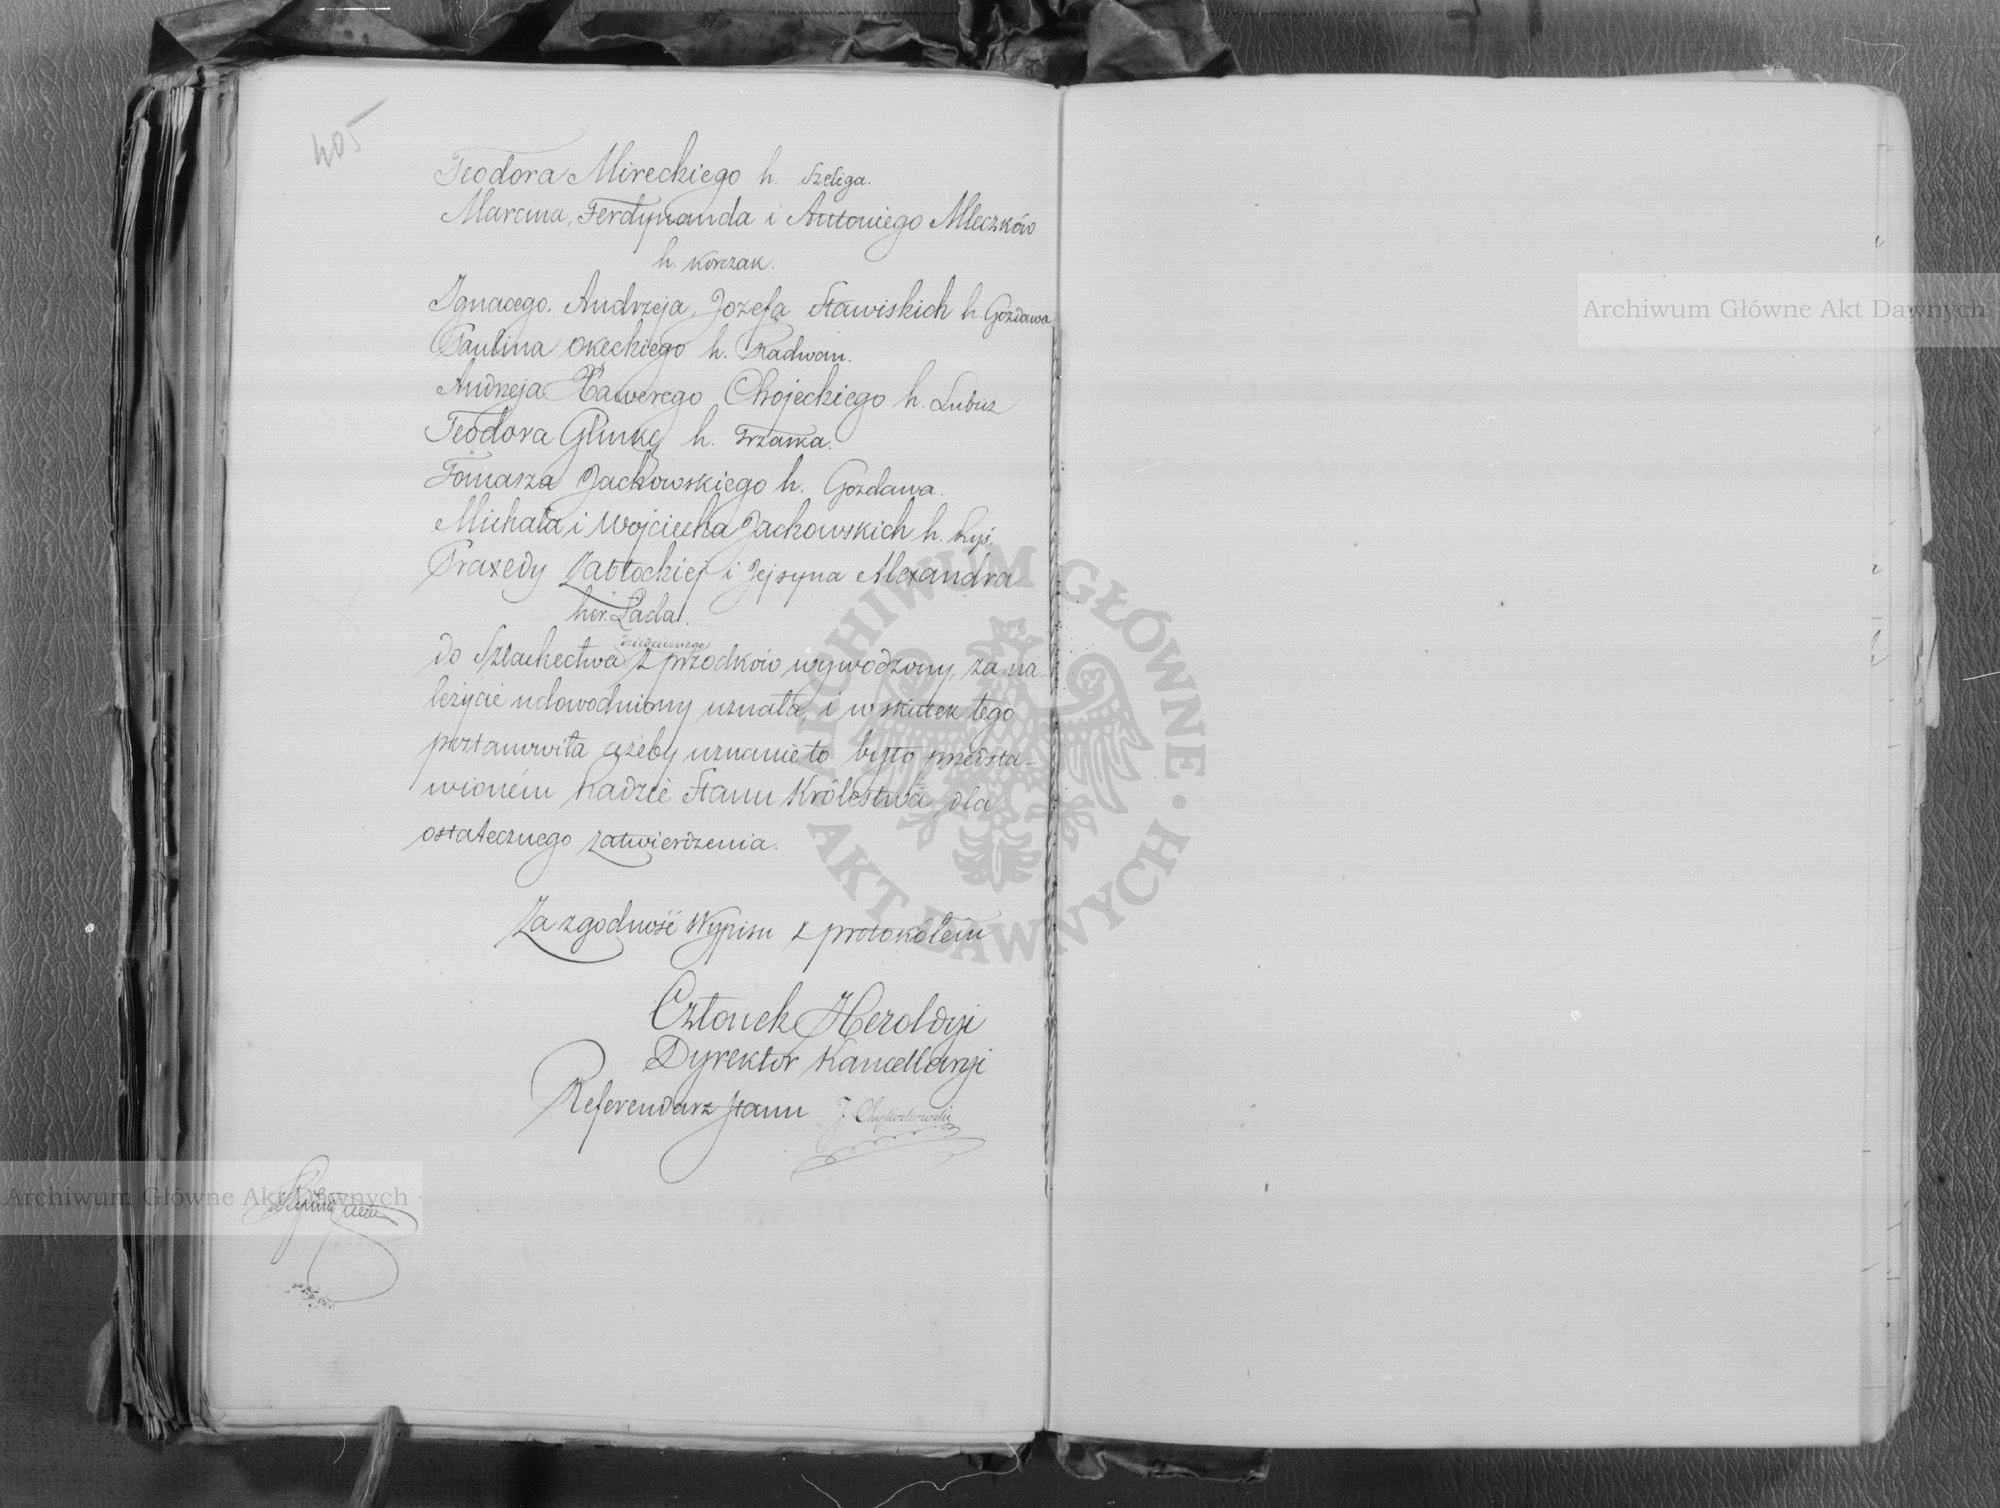 405
Teodora Mireckiego h. Szeliga.
Marcina, Ferdynanda i Antoniego Mleczków
h. Korczak.
Ignacego. Andrzeja, Józefa Stawiskich h. Gozdawa
Paulina Okeckiego h. Radwan.
Andrzeja Xawerego Chojeckiego h. Lubicz
Teodora Glinkę h. Trzaska.
Tomasza Jackowskiego h. Gozdawa.
Michała i Wojciecha Jackowskich h. Ryś.
Praxedy Zabłockiej i Jej syna Alexandra
her. Łada.
dziedzicznego
do Szlachectwa z przodków wywodzony, za na-
leżycie udowodniony uznała, i w skutek tego
postanowiła ażeby uznanie to było przedsta-
wioném Radzie Stanu Królestwa dla
ostatecznego zatwierdzenia.
Za zgodność Wypisu z protokółem
Członek Heroldyi
Dyrektor Kancellaryi
Referendarz Stanu J.
ARCHIWUM GŁÓWNE · AKT DAWNYCH ·
Archiwum Główne Akt Dawnych
Archiwum Główne Akt Dawnych